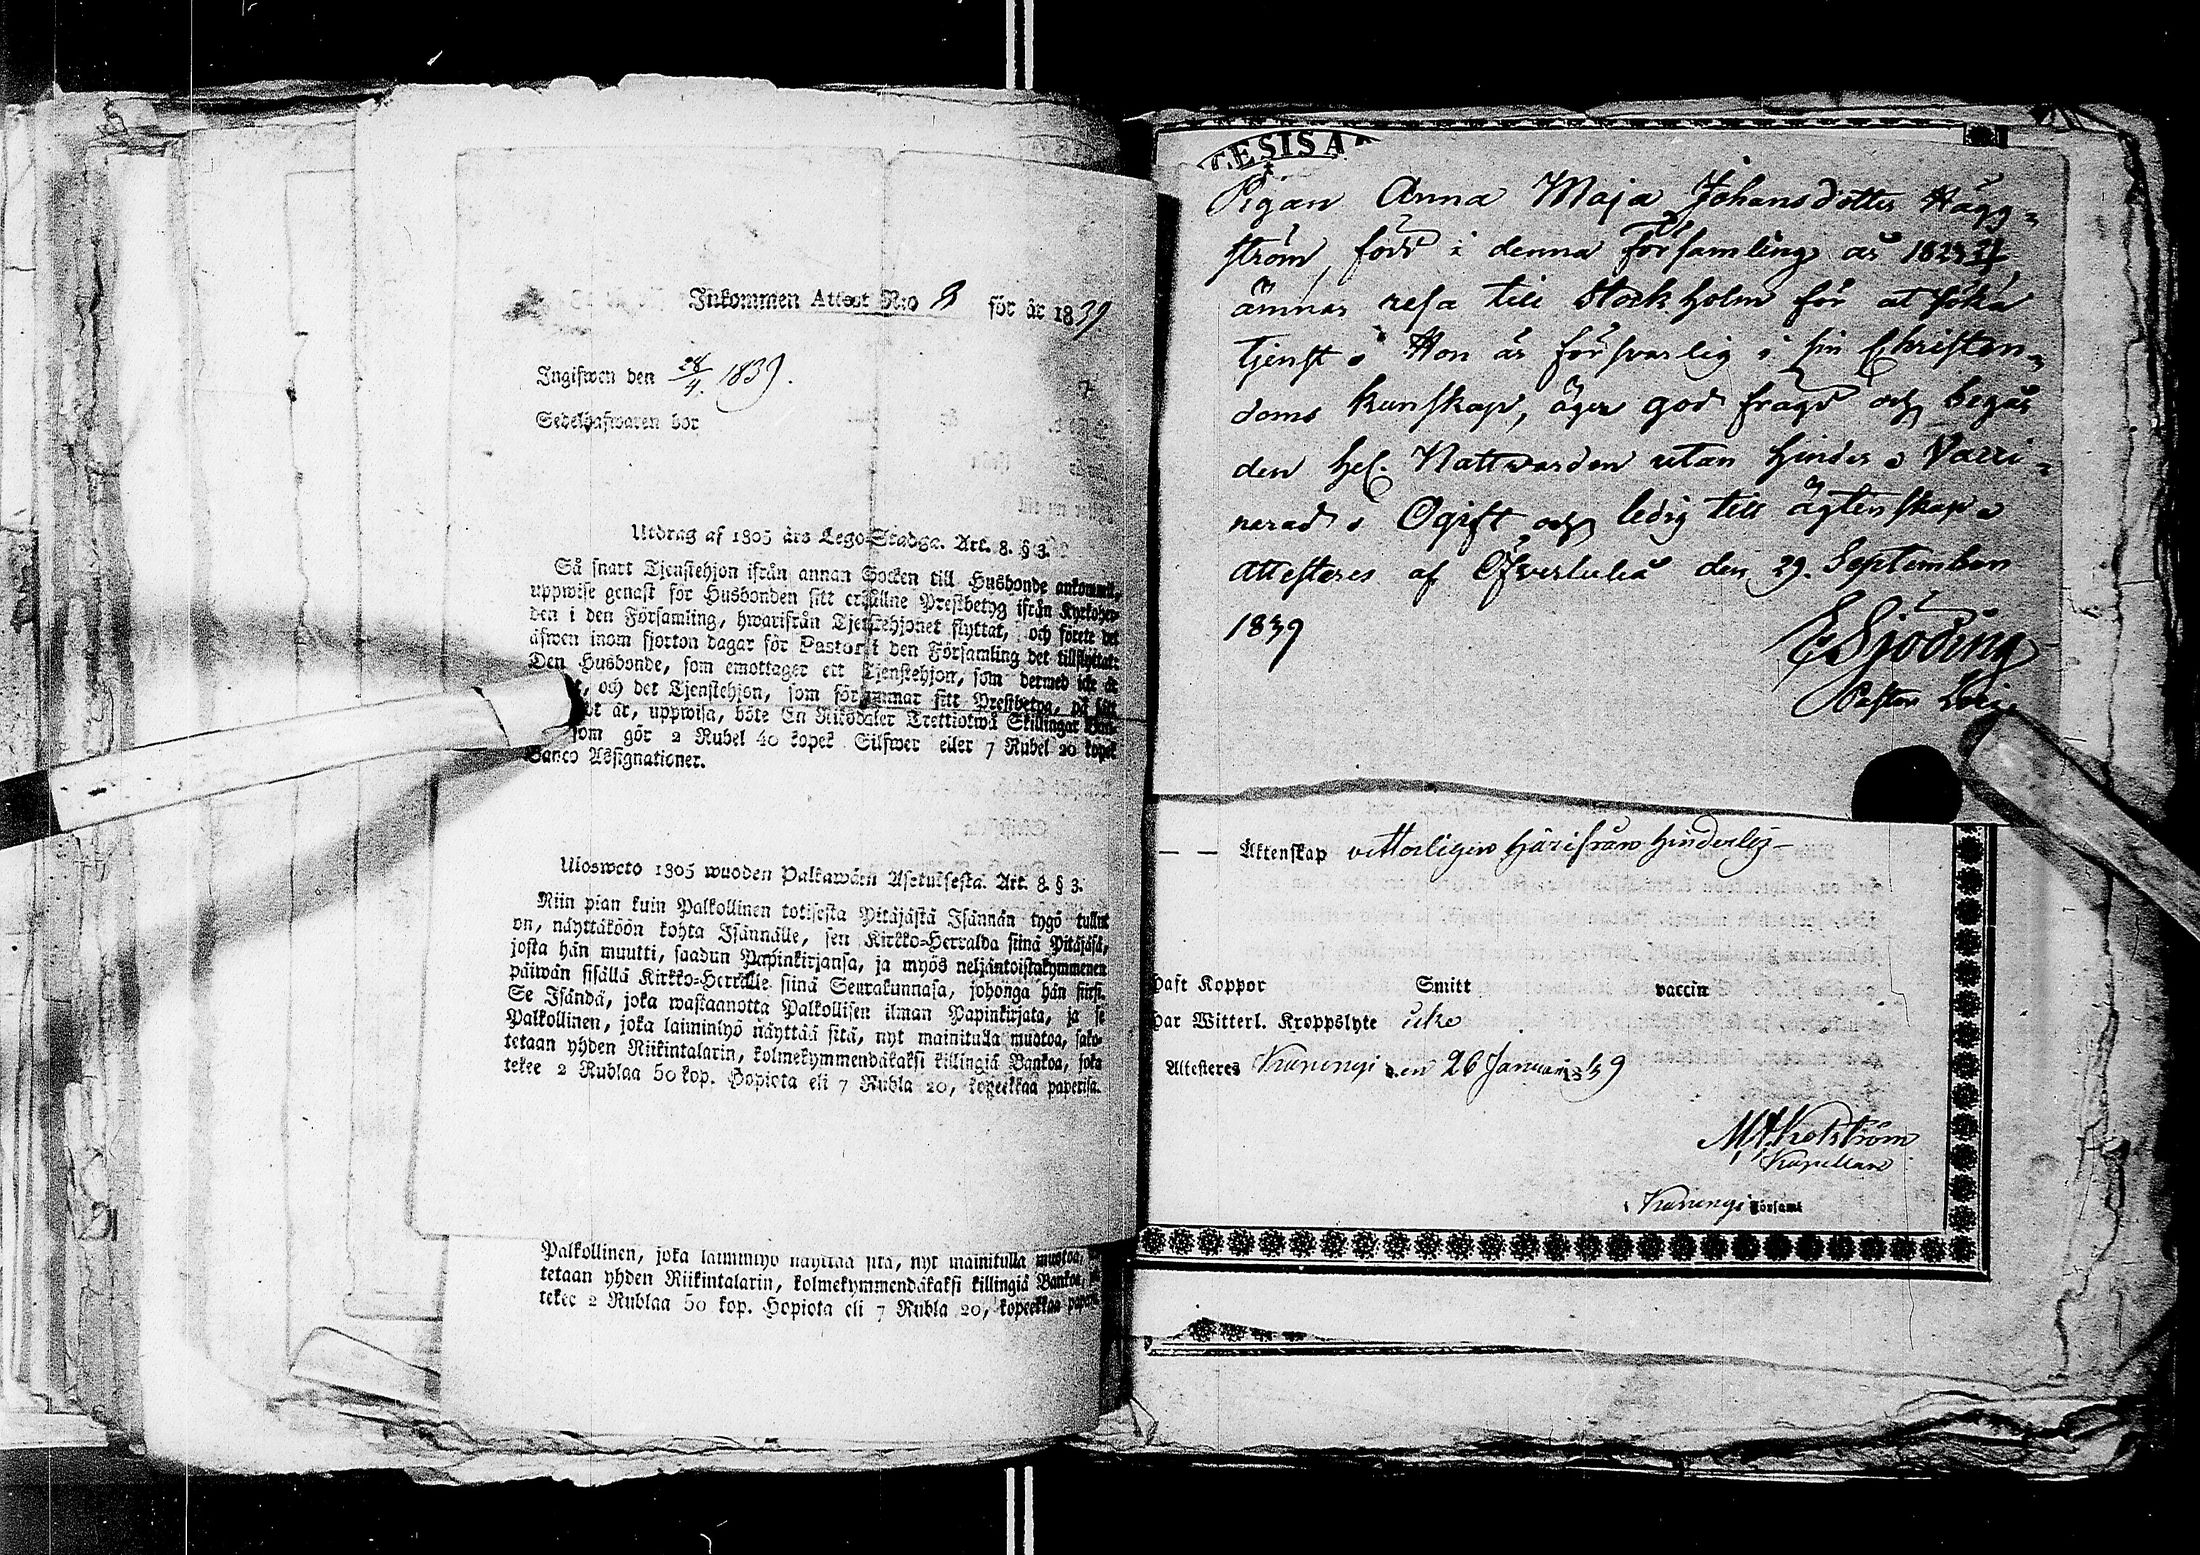 Inkommen Attest N:o 8 för år 1839
Ingifwen den 28/4 1839.
Sedelhafwaren bor
Utdrag af 1805 års Lego-Stadga. Art. 8. § 3.
Så snart Tjenstehjon ifrån annan Socken till Husbonde ankommit,
uppwise genast för Husbonden sitt erhållne Prestbetyg ifrån Kyrkoher-
den i den Församling, hwarifrån Tjenstehjonet flyttat, och förete det
äfwen inom fjorton dagar för Pastor i den Församling det tillflyttat:
Den Husbonde, som emottager ett Tjenstehjon, som dermed icke är
och det Tjenstehjon, som försummar sitt Prestbetyg, på sätt
är, uppwisa, böte En Riksdaler Trettiotwå Skillingar Ban-
som gör 2 Rubel 40 kopek Silfwer eller 7 Rubel 20 kopek
Banco Assignationer.
Ulosweto 1805 wuoden Palkawäen Asetuksesta. Art. 8. § 3.
Niin pian kuin Palkollinen toisesta Pitäjästä Isännän tygö tullut
on, näyttäköön kohta Isännälle, sen Kirkko-Herralda siinä Pitäjäsä,
josta hän muutti, saadun Papinkirjansa, ja myös neljäntoistakymmenen
päiwän sisällä Kirkko-Herralle siinä Seurakunnasa, johonga hän siirsi.
Se Isändä, joka wastaanotta Palkollisen ilman Papinkirjata, ja se
Palkollinen, joka laiminlyö näyttää sitä, nyt mainitulla muotoa, sako-
tetaan yhden Riikintalarin, kolmekymmendäkaksi killingiä Bankoa, joka
tekee 2 Rublaa 50 kop. Hopiota eli 7 Rubla 20, kopeekkaa paperisa.
Palkollinen, joka laiminlyö näyttää sitä, nyt mainitulla muotoa,
tetaan yhden Riikintalarin, kolmekymmendäkaksi killingiä Bankoa,
tekee 2 Rublaa 50 kop. Hopiota eli 7 Rubla 20, kopeekkaa
Pigan Anna Maja Johansdotter Hägg=
ström, född i denna Församling år 1823
ämnar resa till Stockholm för at söka
tjenst. Hon är försvarlig i sin Christen=
doms kunskap, äger god frägd och begår
den hel. Nattwarden utan hinder. Vacci=
nerad. Ogift och ledig till ägtenskap.
Attesteres af Öfverluleå den 29. September
1839
E Sjöding
Pastor Loci
— — Äktenskap vitterligen härifrån hinderlös —
haft Koppor Smitt vaccin
har Witterl. Kroppslyte icke
Attesteres Karungi den 26 Januari 1839
Kapellan
i Karungi Församl